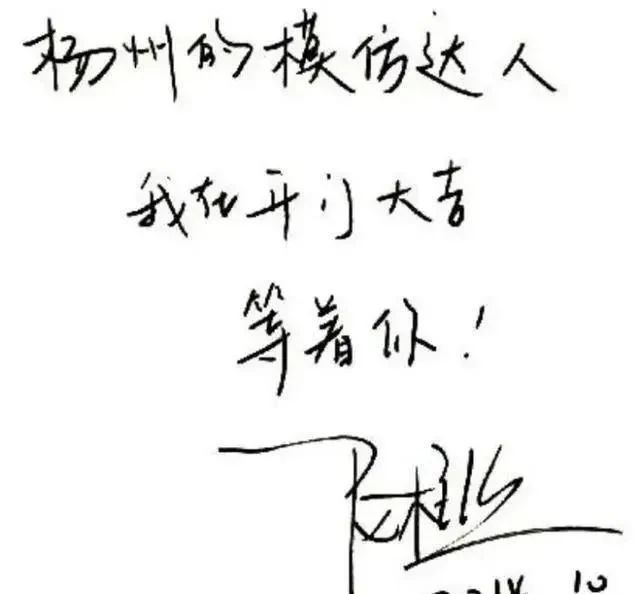 杨州的模仿达人
我在开门大吉
等着你！
2014.10